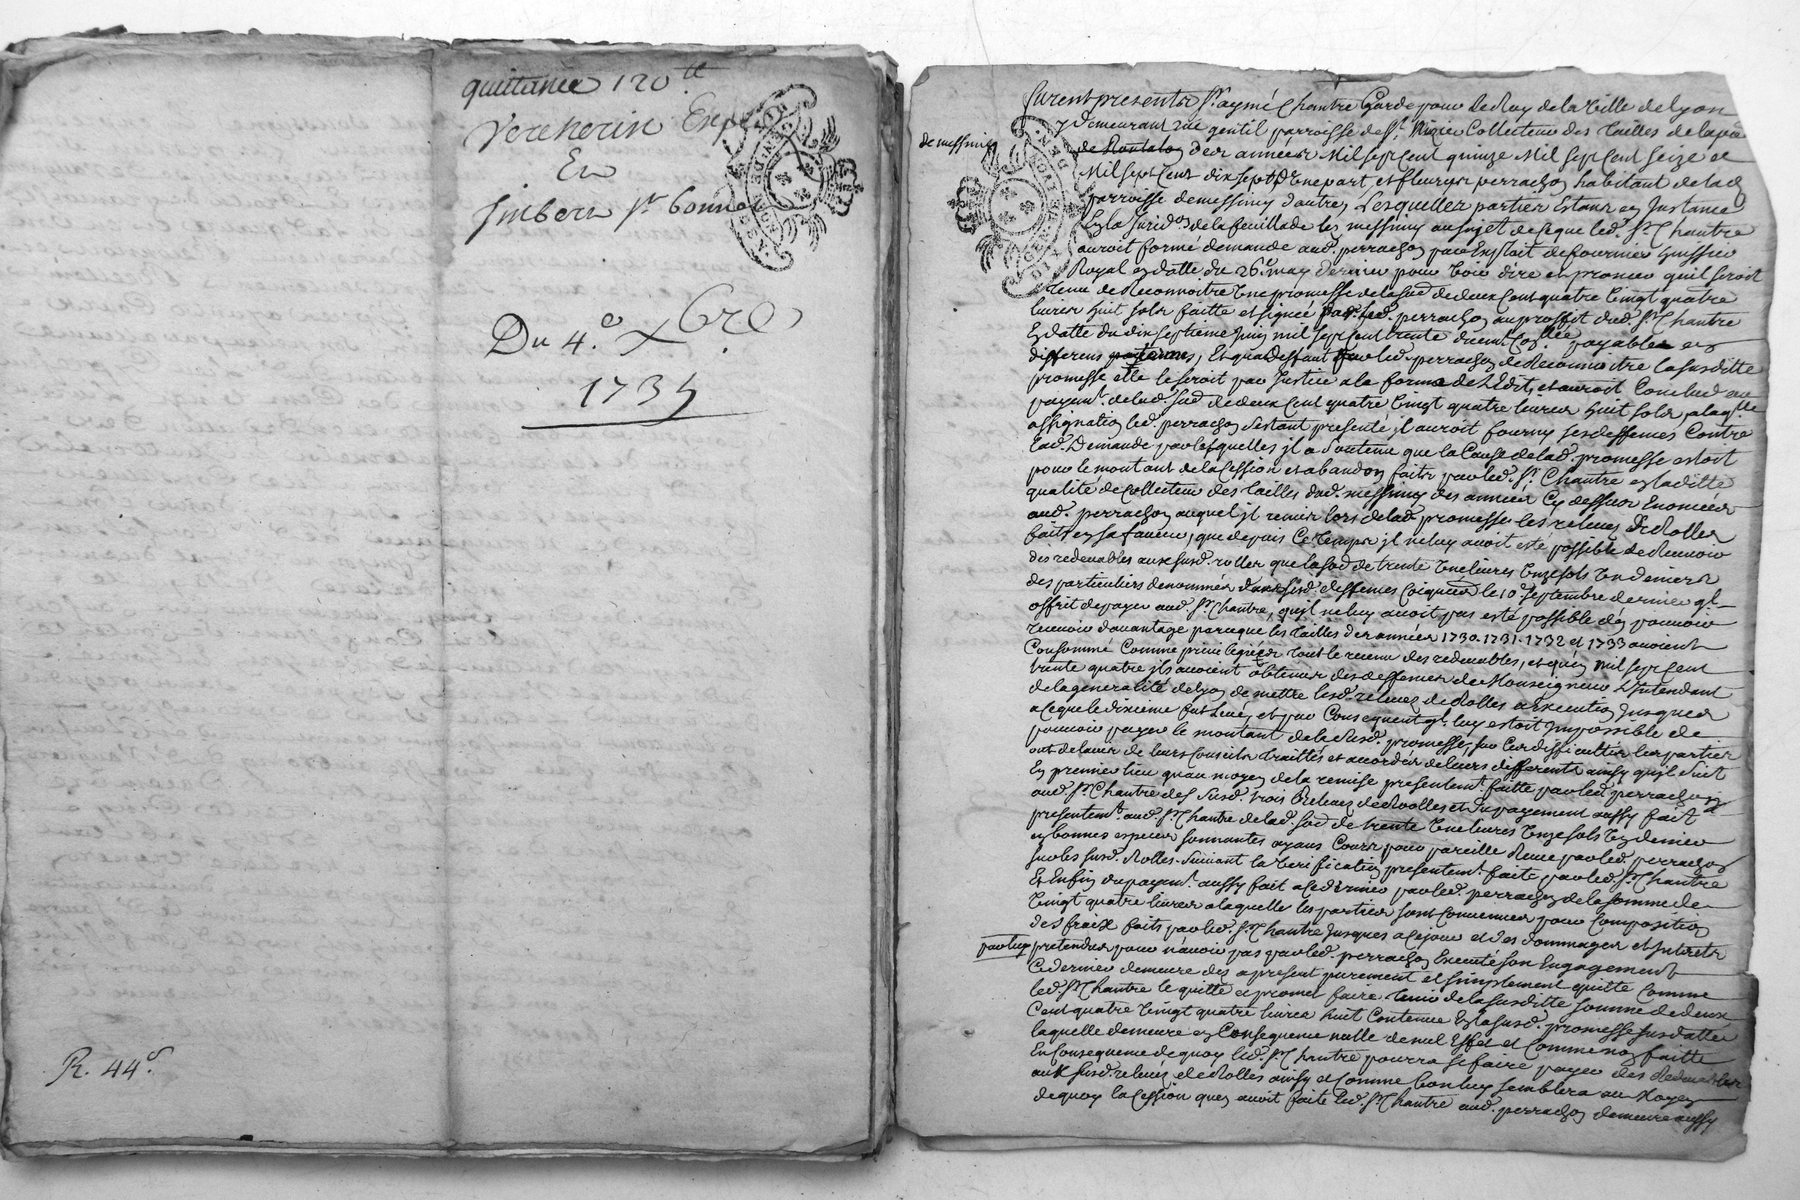 quittance 120ᵗᵗ
Vercherin
En
Jmbert Sr bonnet
Du 4.e Xbre
1735
R. 44s
furent presents Sr. aymé Chantre Garde pour le Roy de la Ville de lyon
y demeurant rüe gentil parroisse de St. Nizier Collecteur des tailles de la
de messimy
de Rontalon des années Mil sept Cent quinze Mil sept Cent seize et
Mil sept Cent dix sept d'Une part, et fleury perrachon habitant de lad.
parroisse de messimy d'autre, Lesquelles parties Estant en Jnstance
En la Jurid.on de la feuillade les messimy au sujet de ce que led. Sr. Chantre
auroit formé demande aud. perrachon par Exploit de fournier huissier
Royal en datte du 26.e may dernier pour Voir dire et prononcer qu'il seroit
tenu de Reconnoitre Une promesse de la so.e de deux Cent quatre Vingt quatre
livres huit sols faitte et signée par led. perrachon au proffit dud. Sr. Chantre
En datte du dix septieme Juin mil sept Cent trente duëment Con.llée payable en
differens payemens, Et qu'a deffaut par led. perrachon de Reconnoitre la susditte
promesse elle le seroit par Justice a la forme de L'Edit, et auroit Conclud au
payem.t de lad. so.e de deux Cent quatre Vingt quatre livres huit sols, a laq.lle
assignation led. perrachon s'estant presenté il auroit fourny ses deffences Contre
lad. Demande par lesquelles il a soutenu que la Cause de lad. promesse estoit
pour le montant de la Cession et abandon faits par led. Sr. Chantre en laditte
qualité de Collecteur des tailles dud. messimy des années Cy dessus Enoncées
aud. perrachon auquel il remit lors de lad. promesse les relevez de Rolles
faits en sa faveur, que depuis Ce temps il ne luy avoit esté possible de Recevoir
des redevables aux susd. rolles que la so.e de trente Une livres Unze sols Un deniers
des particuliers denommés dans sesd. deffences Coignées le 10.e septembre dernier ql.
offrit de payer aud. Sr. Chantre, qu'il ne luy avoit pas esté possible d'en pouvoir
recevoir davantage parceque les tailles des années 1730. 1731. 1732 et 1733 avoient
Consommé Comme privilegiées tout le revenu des redevables, et qu'en mil sept Cent
trente quatre ils avoient obtenus des deffences de Monseigneur L'Intendant
de la generalité de lyon de mettre lesd. relevez de Rolles a execution Jusques
a Ce que le dixieme fut Levé, et par Consequent ql. luy estoit Impossible de
pouvoir payer le montant de la susd. promesse, sur Ces difficultés les parties
ont de l'avis de leurs Conseils traittés et accordés de leurs differents ainsy qu'il suit
En premier lieu qu'au moyen de la remise presentem.t faitte par led. perrachon
aud. Sr. Chantre des susd. trois Relevez de Roolles et du payement aussy fait
presentem.t aud. Sr. Chantre de lad. so.e de trente Une livres Unze sols Un denier
en bonnes especes sonnantes ayans Cours pour pareille Reçue par led. perrachon
sur les susd. Rolles suivant la Verification presentem.t faite par led. Sr. Chantre
Et Enfin du payem.t aussy fait a Ce dernier par led. perrachon de la somme de
Vingt quatre livres a laquelle les parties sont Convenues pour Composition
des fraix faits par led. Sr. Chantre Jusques a Ce jour et des dommages et Jnterets
par luy
pretendus pour n'avoir pas par led. perrachon Executé son Engagement
Ce dernier demeure des a present purement et simplement quitte Comme
led. Sr. Chantre le quitte et promet faire tenir de la susditte somme de deux
Cent quatre Vingt quatre livres huit Contenue En la susd. promesse susdattée
laquelle demeure en Consequence nulle de nul Effet et Comme non faitte
En Consequence de quoy led. Sr. Chantre pourra se faire payer des Redevables
aux susd. relevez de Rolles ainsy et Comme bon luy semblera au Moyen
de quoy la Cession qu'en avoit faite led. Sr. Chantre aud. perrachon demeure aussy